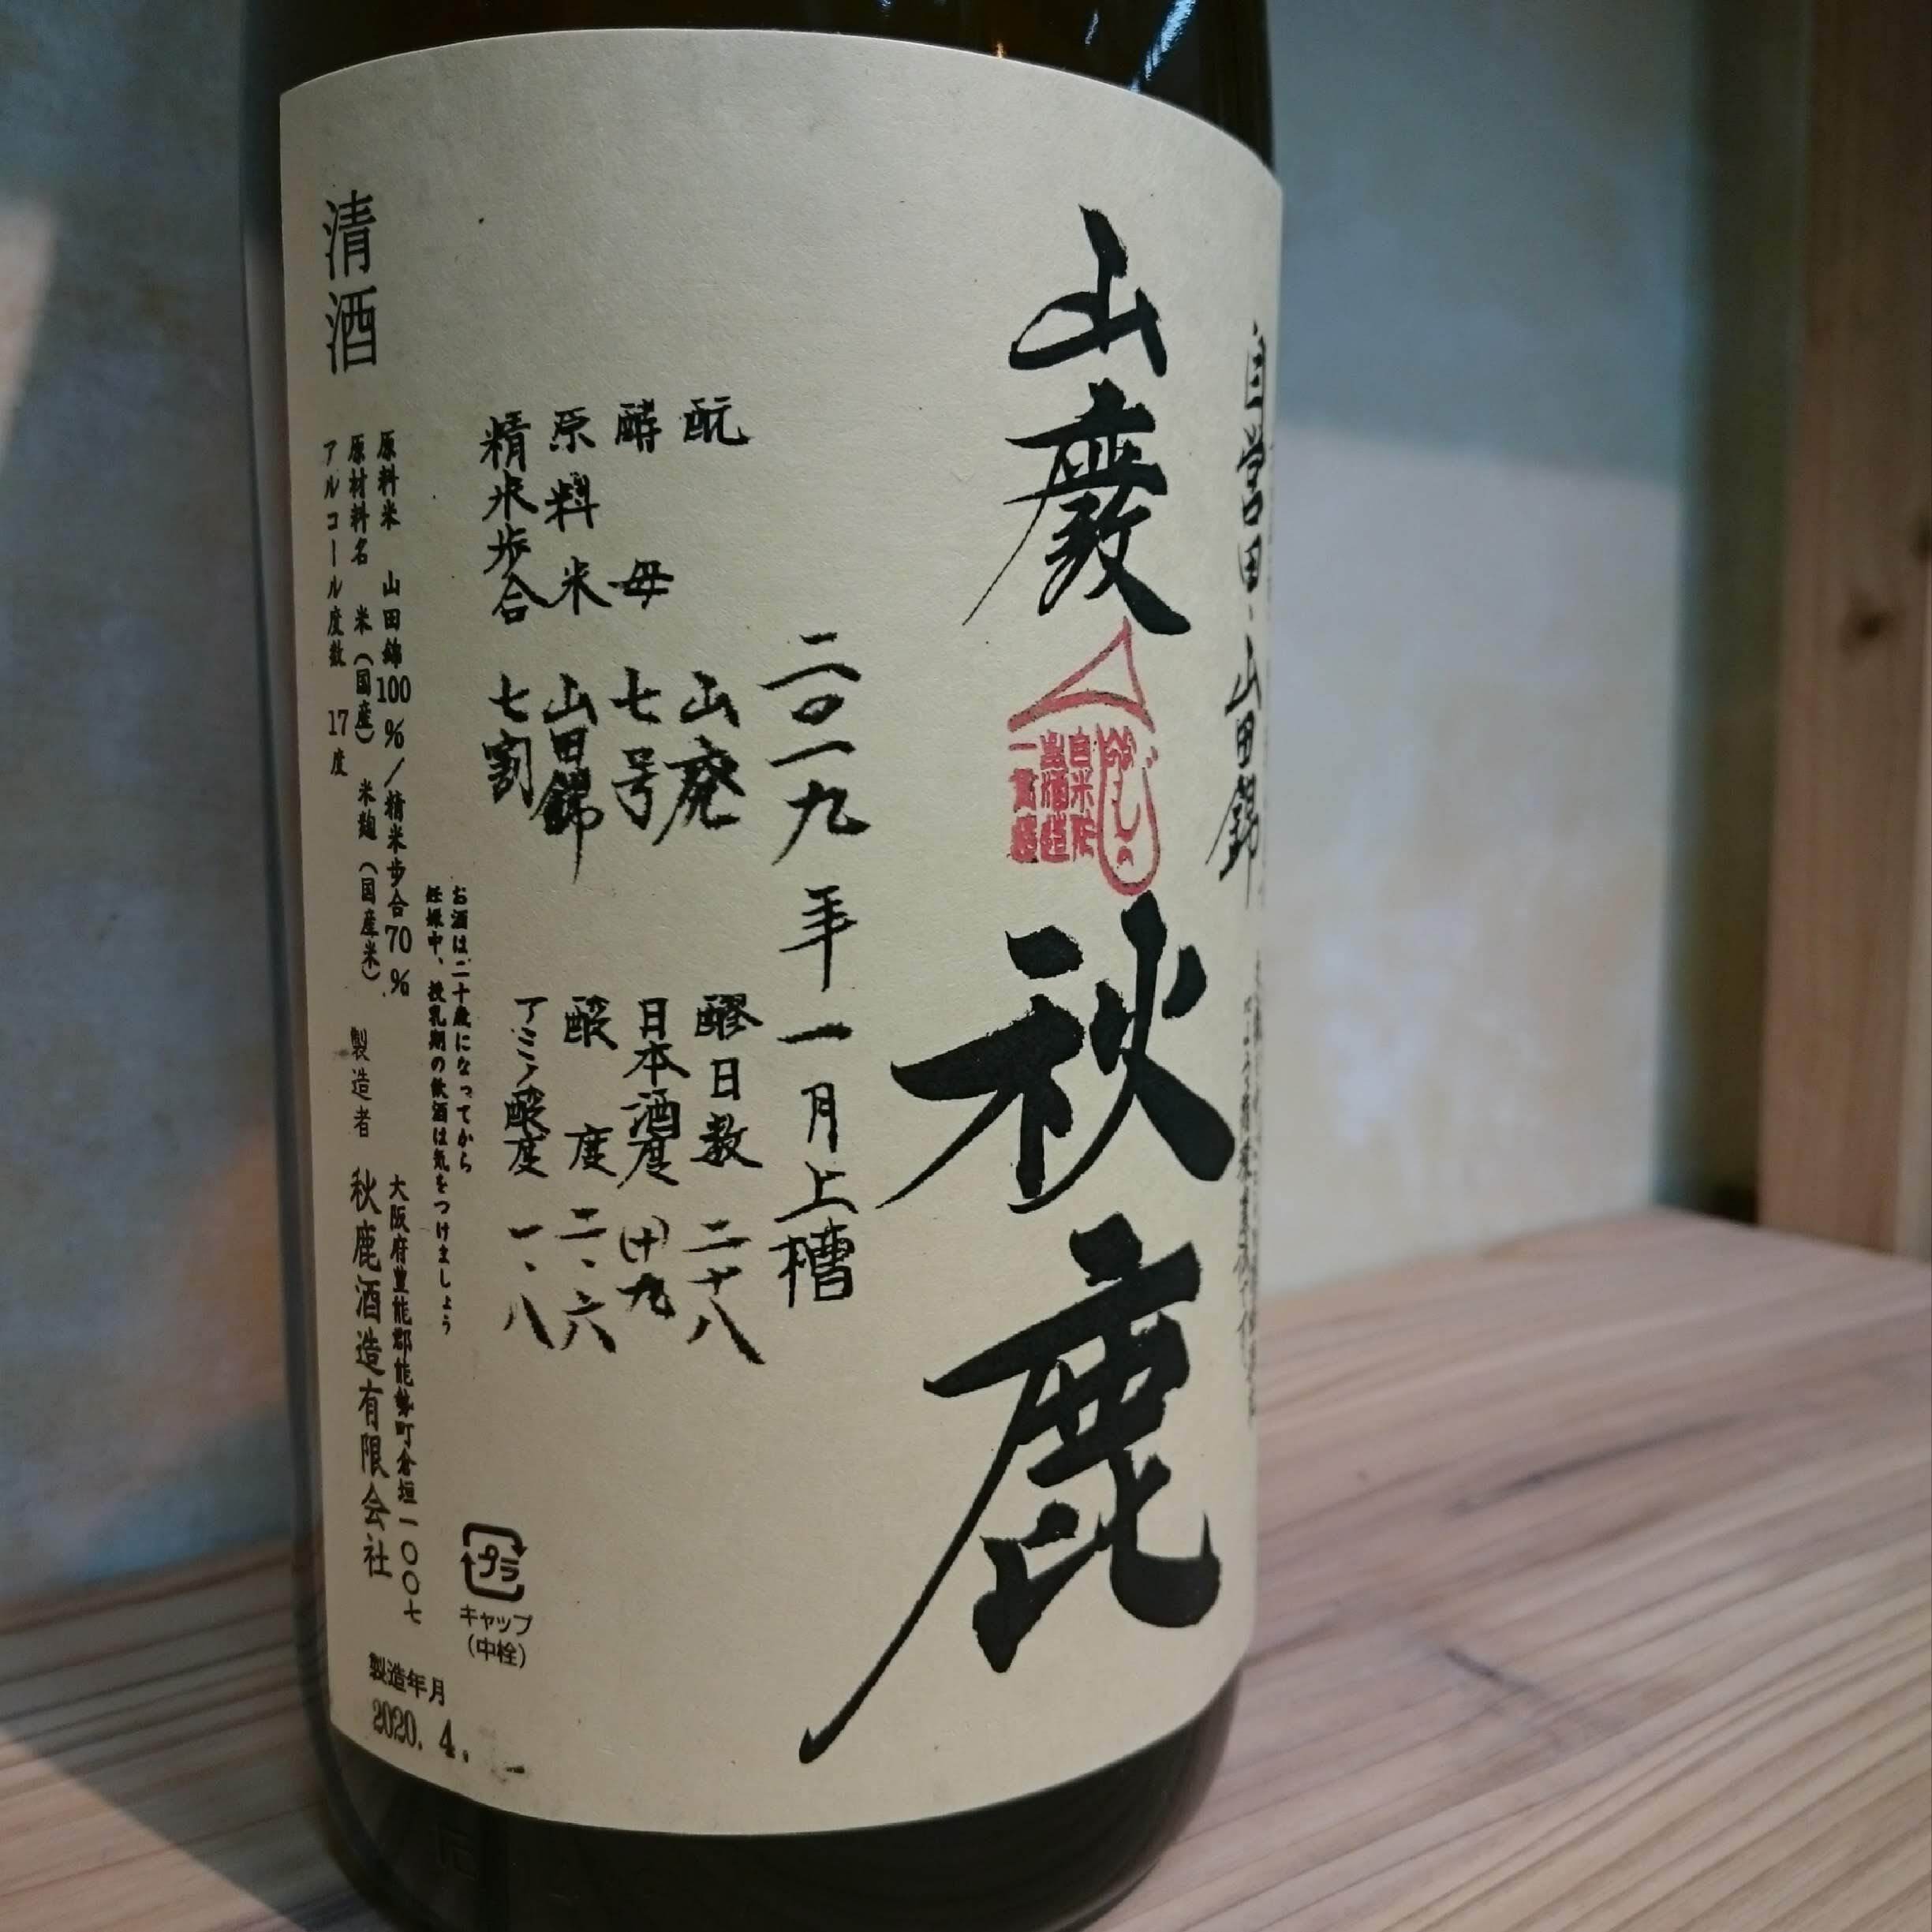 自営田 山田錦
山廃
秋鹿
二〇一九年一月上槽
酛 山廃
酵母 七号
原料米 山田錦
精米歩合 七割
醪日数 二十八
日本酒度 (十)九
酸度 二、六
アミノ酸度 一、八
お酒は二十歳になってから
妊娠中、授乳期の飲酒は気をつけましょう
清酒
原料米 山田錦100%/精米歩合70%
原材料名 米(国産) 米麹(国産米)
アルコール度数 17度
製造者
大阪府豊能郡能勢町倉垣一〇〇七
秋鹿酒造有限会社
プラ
キャップ
(中栓)
製造年月
2020. 4.